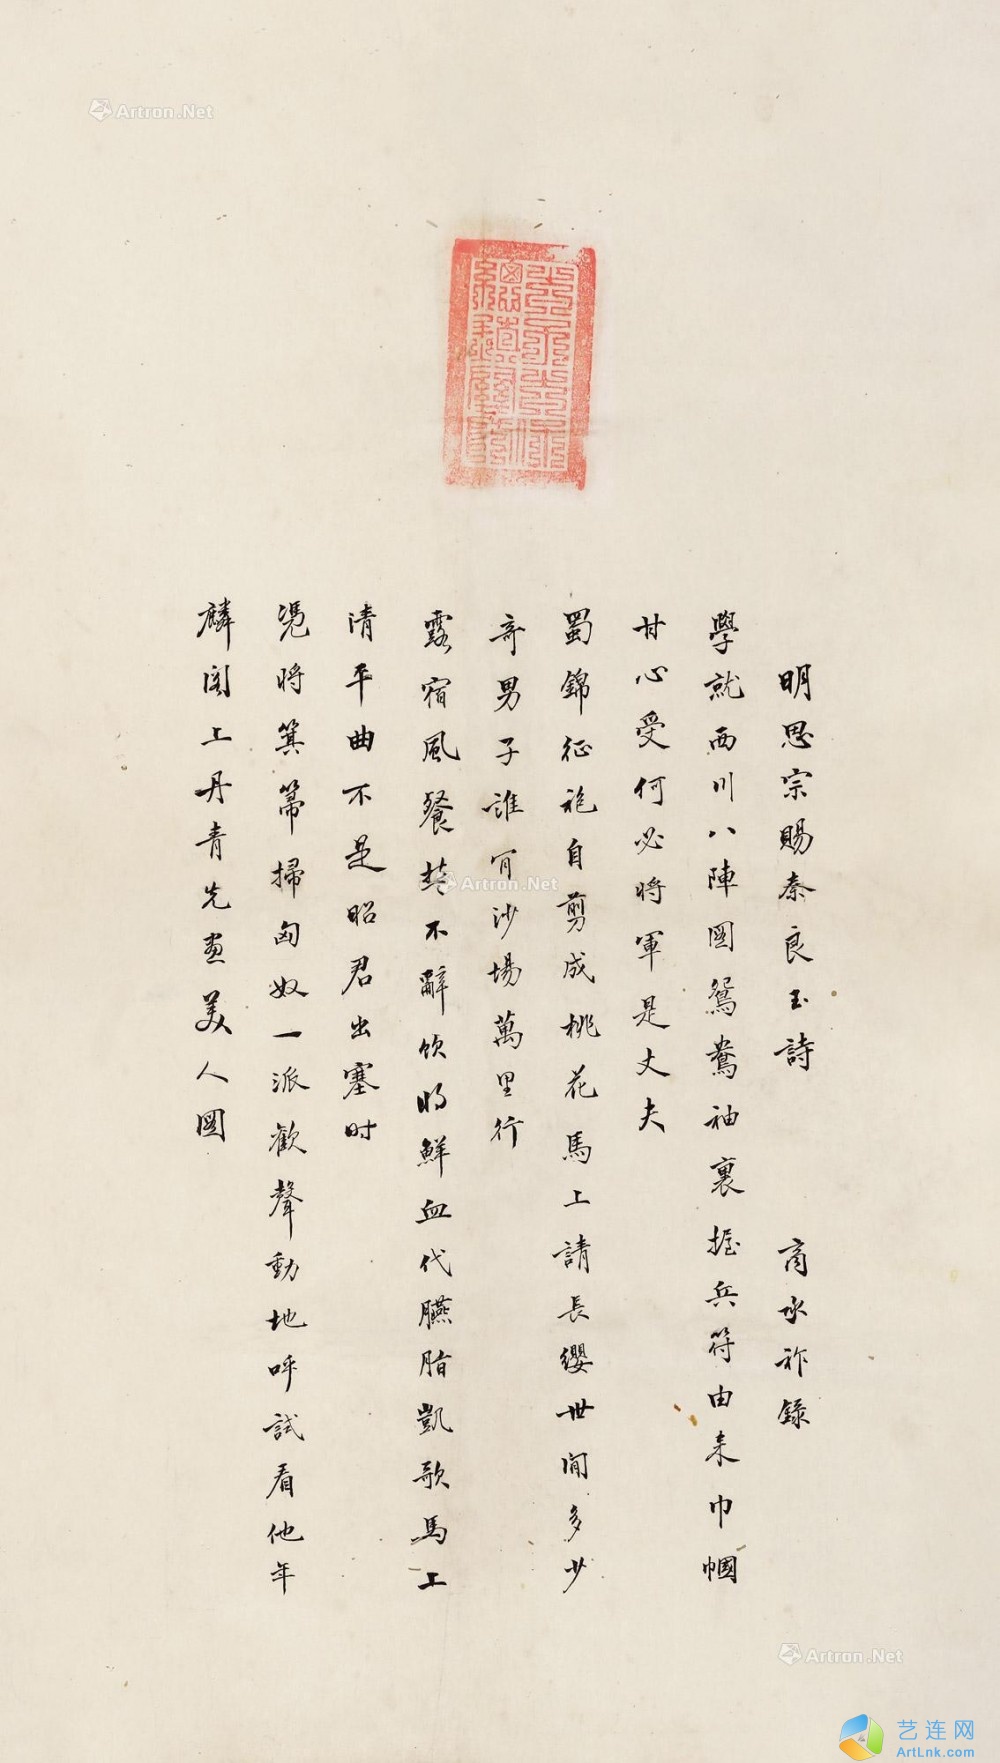 明思宗賜秦良玉詩 商承祚錄
學就西川八陣圖鴛鴦袖裏握兵符由来巾幗
甘心受何必將軍是丈夫
蜀錦征袍自剪成桃花馬上請長纓世間多少
奇男子誰肎沙場萬里行
露宿風餐誓不辭飲將鮮血代臙脂凱歌馬上
清平曲不是昭君出塞时
凴將箕箒掃匈奴一派歡聲動地呼試看他年
麟閣上丹青先畫美人圖
Artron.Net
Artron.Net
Artron.Net
艺连网
ArtLnk.com